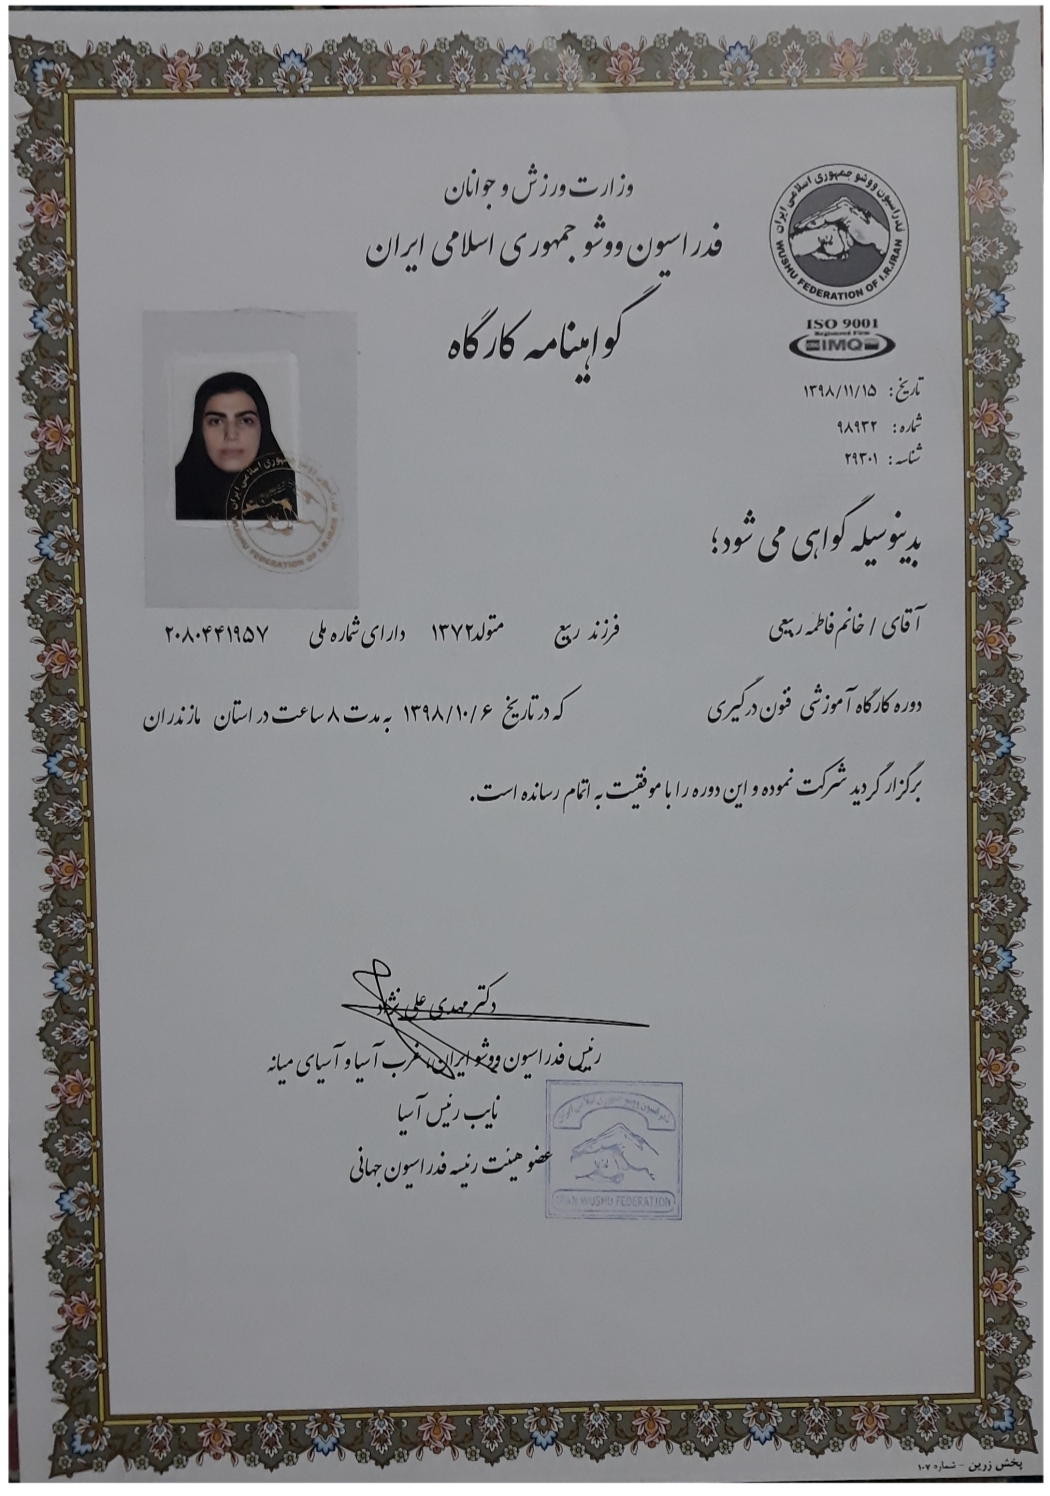 وزارت ورزش و جوانان
فدراسیون ووشو جمهوری اسلامی ایران
گواهینامه کارگاه
فدراسیون ووشو جمهوری اسلامی ایران
WUSHU FEDERATION OF I.R.IRAN
ISO 9001
Registered Firm
IMQ
تاریخ: ۱۳۹۸/۱۱/۱۵
شماره: ۹۸۹۳۲
شناسه: ۲۹۳۰۱
WUSHU FEDERATION OF I.R.IRAN
بدینوسیله گواهی می شود؛
آقای / خانم فاطمه ربیعی فرزند ربیع متولد ۱۳۷۲ دارای شماره ملی ۲۰۸۰۴۴۱۹۵۷
دوره کارگاه آموزشی فنون درگیری که در تاریخ ۱۳۹۸/۱۰/۶ به مدت ۸ ساعت در استان مازندران
برگزار گردید شرکت نموده و این دوره را با موفقیت به اتمام رسانده است.
دکتر مهدی علی نژاد
رئیس فدراسیون ووشو ایران، غرب آسیا و آسیای میانه
نایب رئیس آسیا
عضو هیئت رئیسه فدراسیون جهانی
IRAN WUSHU FEDERATION
پخش زرین - شماره ۱۰۷